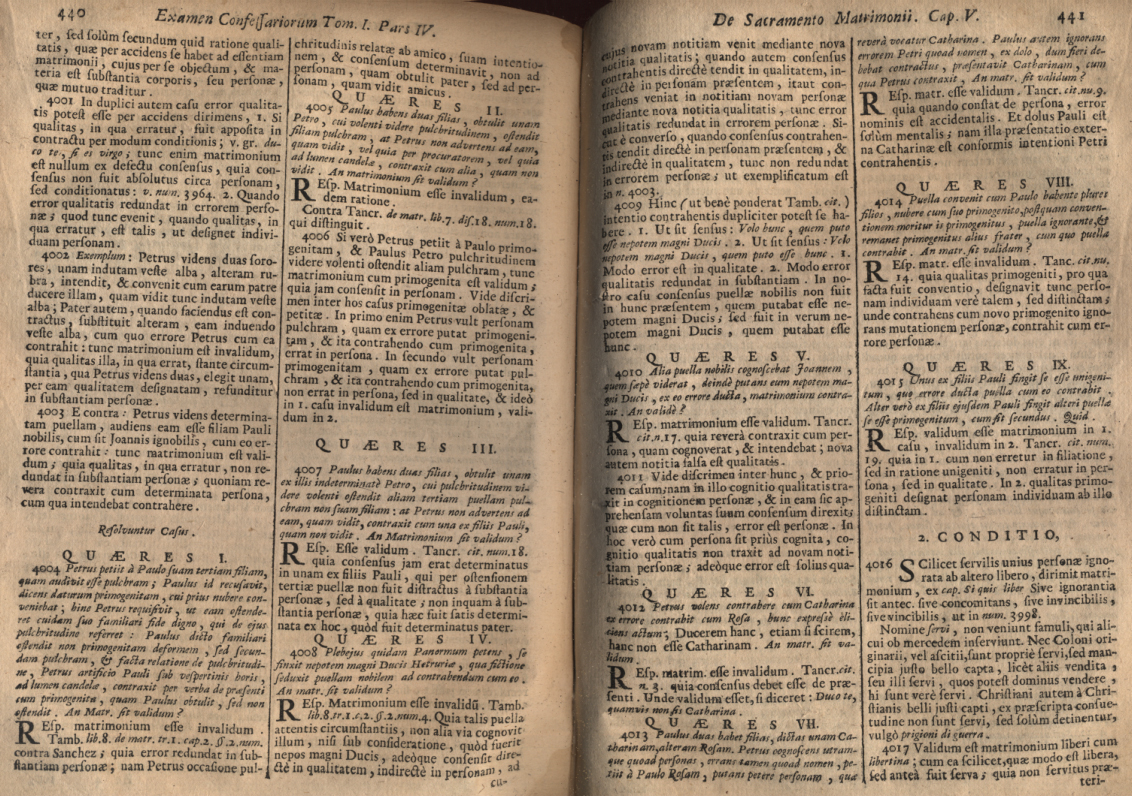 440
Examen Confeſſariorum Tom. I. Pars IV.
ter, ſed ſolùm ſecundum quid ratione quali-
tatis, quæ per accidens ſe habet ad eſſentiam
matrimonii, cujus per ſe objectum, & ma-
teria eſt ſubſtantia corporis, ſeu perſonæ,
quæ mutuo traditur.
4001 In duplici autem caſu error qualita-
tis poteſt eſſe per accidens dirimens, 1. Si
qualitas, in qua erratur, fuit appoſita in
contractu per modum conditionis; v. gr. du-
co te, ſi es virgo; tunc enim matrimonium
eſt nullum ex defectu conſenſus, quia con-
ſenſus non fuit abſolutus circa perſonam,
ſed conditionatus: v. num. 3964. 2. Quando
error qualitatis redundat in errorem perſo-
næ; quod tunc evenit, quando qualitas, in
qua erratur, eſt talis, ut deſignet indivi-
duam perſonam.
4002 Exemplum: Petrus videns duas ſoro-
res, unam indutam veſte alba, alteram ru-
bra, intendit, & convenit cum earum patre
ducere illam, quam vidit tunc indutam veſte
alba; Pater autem, quando faciendus eſt con-
tractus, ſubſtituit alteram, eam induendo
veſte alba, cum quo errore Petrus cum ea
contrahit: tunc matrimonium eſt invalidum,
quia qualitas illa, in qua errat, ſtante circum-
ſtantia, qua Petrus videns duas, elegit unam,
per eam qualitatem deſignatam, refunditur
in ſubſtantiam perſonæ.
4003 E contra: Petrus videns determina-
tam puellam, audiens eam eſſe filiam Pauli
nobilis, cum ſit Joannis ignobilis, cum eo er-
rore contrahit: tunc matrimonium eſt vali-
dum; quia qualitas, in qua erratur, non re-
dundat in ſubſtantiam perſonæ; quoniam re-
vera contraxit cum determinata perſona,
cum qua intendebat contrahere.
Reſolvuntur Caſus.
QUÆRES I.
4004 Petrus petiit à Paulo ſuam tertiam filiam,
quam audivit eſſe pulchram; Paulus id recuſavit,
dicens daturum primogenitam, cui prius nubere con-
veniebat; hinc Petrus requiſivit, ut eam oſtende-
ret cuidam ſuo familiari fide digno, qui de ejus
pulchritudine referret: Paulus dicto familiari
oſtendit non primogenitam deformem, ſed ſecun-
dam pulchram, & facta relatione de pulchritudi-
ne, Petrus artificio Pauli ſub veſpertinis horis,
ad lumen candelæ, contraxit per verba de præſenti
cum primogenita, quam Paulus obtulit, ſed non
oſtendit. An Matr. ſit validum?
REſp. matrimonium eſſe invalidum.
Tamb. lib.8. de matr. tr.1. cap.2. §.2. num.
contra Sanchez; quia error redundat in ſub-
ſtantiam perſonæ; nam Petrus occaſione pul-
chritudinis relatæ ab amico, ſuam intentio-
nem, & conſenſum determinavit, non ad
perſonam, quam obtulit pater, ſed ad per-
ſonam, quam vidit amicus.
QUÆRES II.
4005 Paulus habens duas filias, obtulit unam
Petro, cui volenti videre pulchritudinem, oſtendit
filiam pulchram, at Petrus non advertens ad eam,
quam vidit, vel quia per procuratorem, vel quia
ad lumen candelæ, contraxit cum alia, quam non
vidit. An matrimonium ſit validum?
REſp. Matrimonium eſſe invalidum, ea-
dem ratione.
Contra Tancr. de matr. lib.7. diſ.18. num.18.
qui diſtinguit.
4006 Si verò Petrus petiit à Paulo primo-
genitam, & Paulus Petro pulchritudinem
videre volenti oſtendit aliam pulchram, tunc
matrimonium cum primogenita eſt validum;
quia jam conſenſit in perſonam. Vide diſcri-
men inter hos caſus primogenitæ oblatæ, &
petitæ. In primo enim Petrus vult perſonam
pulchram, quam ex errore putat primogeni-
tam, & ita contrahendo cum primogenita,
errat in perſona. In ſecundo vult perſonam
primogenitam, quam ex errore putat pul-
chram, & ita contrahendo cum primogenita,
non errat in perſona, ſed in qualitate, & ideò
in 1. caſu invalidum eſt matrimonium, vali-
dum in 2.
QUÆRES III.
4007 Paulus habens duas filias, obtulit unam
ex illis indeterminatè Petro, cui pulchritudinem vi-
dere volenti oſtendit aliam tertiam puellam pul-
chram non ſuam filiam: at Petrus non advertens ad
eam, quam vidit, contraxit cum una ex filiis Pauli,
quam non vidit. An Matrimonium ſit validum?
REſp. Eſſe validum. Tancr. cit. num.18.
quia conſenſus jam erat determinatus
in unam ex filiis Pauli, qui per oſtenſionem
tertiæ puellæ non fuit diſtractus à ſubſtantia
perſonæ, ſed à qualitate; non inquam à ſub-
ſtantia perſonæ, quia hæc fuit ſatis determi-
nata ex hoc, quòd fuit determinatus pater.
QUÆRES IV.
4008 Plebejus quidam Panormum petens, ſe
finxit nepotem magni Ducis Hetruriæ, qua fictione
ſeduxit puellam nobilem ad contrahendum cum eo.
An matr. ſit validum?
REſp. Matrimonium eſſe invalidũ. Tamb.
lib.8.tr.1.c.2.§.2.num.4. Quia talis puella
attentis circumſtantiis, non alia via cognovit
illum, niſi ſub conſideratione, quòd fuerit
nepos magni Ducis, adeòque conſenſit dire-
ctè in qualitatem, indirectè in perſonam, ad
cu-
De Sacramento Matrimonii. Cap. V.
441
cujus novam notitiam venit mediante nova
notitia qualitatis; quando autem conſenſus
contrahentis directè tendit in qualitatem, in-
directè in perſonam præſentem, itaut con-
trahens veniat in notitiam novam perſonæ
mediante nova notitia qualitatis, tunc error
qualitatis redundat in errorem perſonæ. Si-
cut è converſo, quando conſenſus contrahen-
tis tendit directè in perſonam præſentem, &
indirectè in qualitatem, tunc non redundat
in errorem perſonæ; ut exemplificatum eſt
in n. 4003.
4009 Hinc (ut benè ponderat Tamb. cit.)
intentio contrahentis dupliciter poteſt ſe ha-
bere. 1. Ut ſit ſenſus: Volo hunc, quem puto
eſſe nepotem magni Ducis. 2. Ut ſit ſenſus: Volo
nepotem magni Ducis, quem puto eſſe hunc. 1.
Modo error eſt in qualitate. 2. Modo error
qualitatis redundat in ſubſtantiam. In no-
ſtro caſu conſenſus puellæ nobilis non fuit
in hunc præſentem, quem putabat eſſe ne-
potem magni Ducis; ſed fuit in verum ne-
potem magni Ducis, quem putabat eſſe
hunc.
QUÆRES V.
4010 Alia puella nobilis cognoſcebat Joannem,
quem ſæpè viderat, deindè putans eum nepotem ma-
gni Ducis, ex eo errore ducta, matrimonium contra-
xit. An validè?
REſp. matrimonium eſſe validum. Tancr.
cit.n.17. quia reverà contraxit cum per-
ſona, quam cognoverat, & intendebat; nova
autem notitia falſa eſt qualitatis.
4011 Vide diſcrimen inter hunc, & prio-
rem caſum; nam in illo cognitio qualitatis tra-
xit in cognitionem perſonæ, & in eam ſic ap-
prehenſam voluntas ſuum conſenſum direxit;
quæ cum non ſit talis, error eſt perſonæ. In
hoc verò cum perſona ſit priùs cognita, co-
gnitio qualitatis non traxit ad novam noti-
tiam perſonæ; adeòque error eſt ſolius qua-
litatis.
QUÆRES VI.
4012 Petrus volens contrahere cum Catharina
ex errore contrahit cum Roſa, hunc expreſſè eli-
ciens actum; Ducerem hanc, etiam ſi ſcirem,
hanc non eſſe Catharinam. An matr. ſit va-
lidum.
REſp. matrim. eſſe invalidum. Tancr.cit.
n. 3. quia conſenſus debet eſſe de præ-
ſenti. Unde validum eſſet, ſi diceret: Duco te,
quamvis non ſis Catharina.
QUÆRES VII.
4013 Paulus duas habet filias, dictas unam Ca-
tharinam, alteram Roſam. Petrus cognoſcens utram-
que quoad perſonas, errans tamen quoad nomen, pe-
tiit à Paulo Roſam, putans petere perſonam, quæ
reverà vocatur Catharina. Paulus autem ignorans
errorem Petri quoad nomen, ex dolo, dum fieri de-
bebat contractus, præſentavit Catharinam, cum
qua Petrus contraxit. An matr. ſit validum?
REſp. matr. eſſe validum. Tancr. cit.nu.9.
quia quando conſtat de perſona, error
nominis eſt accidentalis. Et dolus Pauli eſt
ſolùm mentalis; nam illa præſentatio exter-
na Catharinæ eſt conformis intentioni Petri
contrahentis.
QUÆRES VIII.
4014 Puella convenit cum Paulo habente plures
filios, nubere cum ſuo primogenito, poſtquam conven-
tionem moritur is primogenitus, puella ignorante, &
remanet primogenitus alius frater, cum quo puella
contrahit. An matr. ſit validum?
REſp. matr. eſſe invalidum. Tanc. cit.nu.
14. quia qualitas primogeniti, pro qua
facta fuit conventio, deſignavit tunc perſo-
nam individuam verè talem, ſed diſtinctam;
unde contrahens cum novo primogenito igno-
rans mutationem perſonæ, contrahit cum er-
rore perſonæ.
QUÆRES IX.
4015 Unus ex filiis Pauli fingit ſe eſſe unigeni-
tum, quo errore ducta puella cum eo contrahit.
Alter verò ex filiis ejuſdem Pauli fingit alteri puellæ
ſe eſſe primogenitum, cum ſit ſecundus. Quid.
REſp. validum eſſe matrimonium in 1.
caſu, invalidum in 2. Tancr. cit. num.
19. quia in 1. cum non erretur in filiatione,
ſed in ratione unigeniti, non erratur in per-
ſona, ſed in qualitate. In 2. qualitas primo-
geniti deſignat perſonam individuam ab illo
diſtinctam.
2. CONDITIO,
4016 SCilicet ſervilis unius perſonæ igno-
rata ab altero libero, dirimit matri-
monium, ex cap. Si quis liber Sive ignorantia
ſit antec. ſive concomitans, ſive invincibilis,
ſive vincibilis, ut in num. 3998.
Nomine ſervi, non veniunt famuli, qui ali-
cui ob mercedem inſerviunt. Nec Coloni ori-
ginarii, vel aſcitii, ſunt propriè ſervi, ſed man-
cipia juſto bello capta, licèt aliis vendita,
ſeu illi ſervi, quos poteſt dominus vendere,
hi ſunt verè ſervi. Chriſtiani autem à Chri-
ſtianis belli juſti capti, ex præſcripta conſue-
tudine non ſunt ſervi, ſed ſolùm detinentur,
vulgò prigioni di guerra.
4017 Validum eſt matrimonium liberi cum
libertina; cum ea ſcilicet, quæ modo eſt libera,
ſed anteà fuit ſerva; quia non ſervitus præ-
teri-